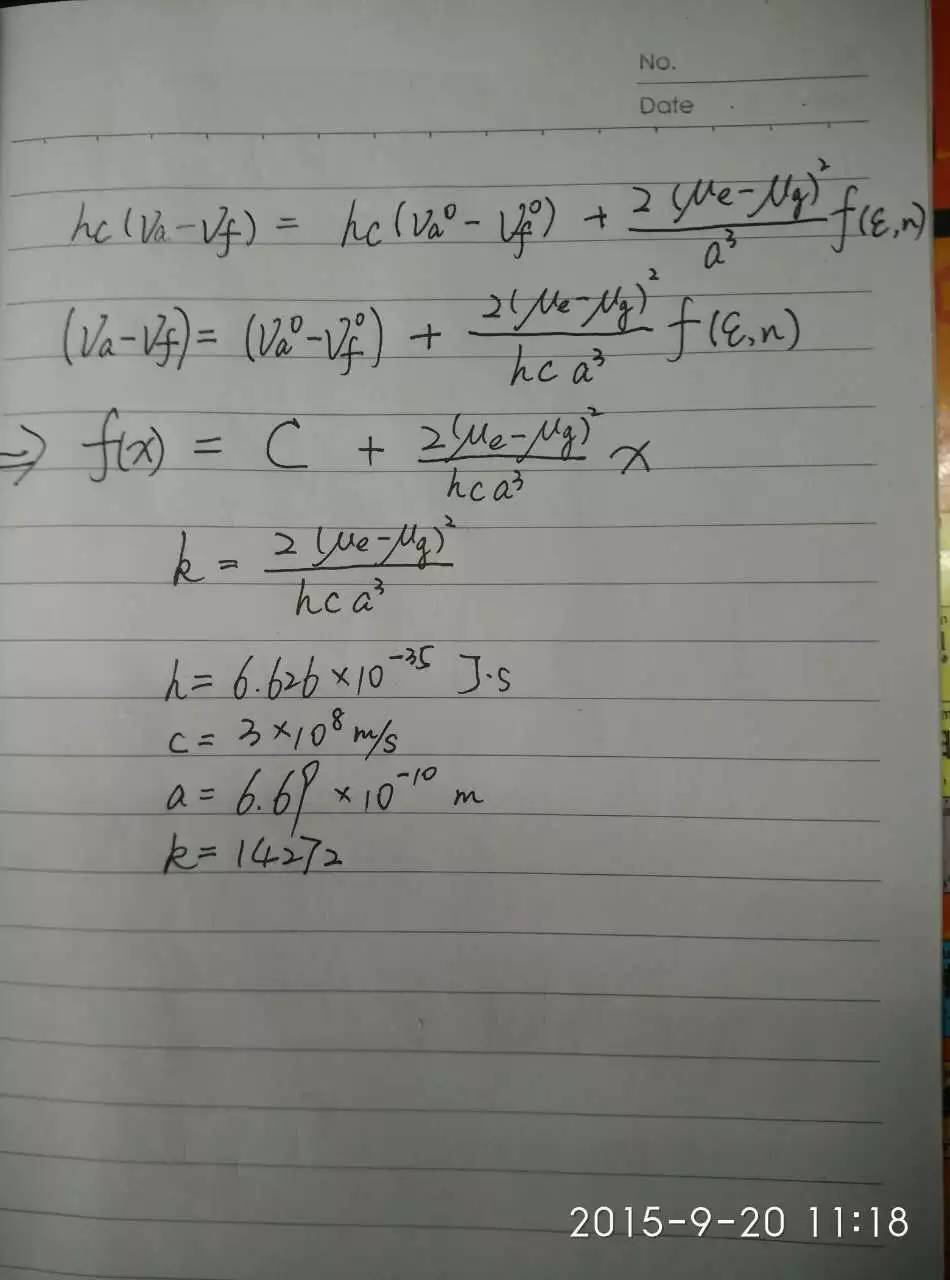 No.
Date
hc(νa-νf) = hc(νa⁰-νf⁰) + 2(μe-μg)²/a³ f(ε,n)
(νa-νf) = (νa⁰-νf⁰) + 2(μe-μg)²/hca³ f(ε,n)
⇒ f(x) = C + 2(μe-μg)²/hca³ x
k = 2(μe-μg)²/hca³
h = 6.626×10⁻³⁵ J·s
c = 3×10⁸ m/s
a = 6.69×10⁻¹⁰ m
k = 14272
2015-9-20 11:18